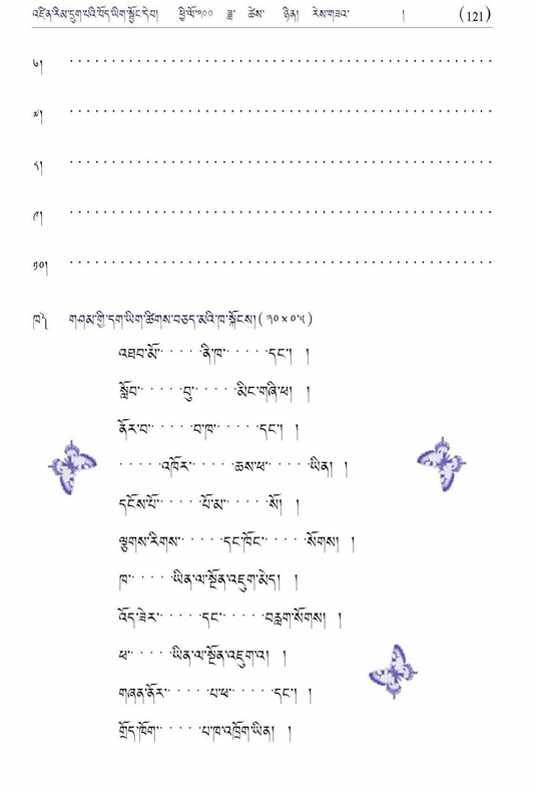 འཛིན་རིམ་དྲུག་པའི་བོད་ཡིག་སྦྱོང་དེབ། ཕྱི་ལོ་༢༠༠ ཟླ་ ཚེས་ ཉིན། རེས་གཟའ་ ། (121)
༦། . . . . . . . . . . . . . . . . . . . . . . . . . . . . . . . . . . . . . . . . . . . . . . . . . .
༧། . . . . . . . . . . . . . . . . . . . . . . . . . . . . . . . . . . . . . . . . . . . . . . . . . .
༨། . . . . . . . . . . . . . . . . . . . . . . . . . . . . . . . . . . . . . . . . . . . . . . . . . .
༩། . . . . . . . . . . . . . . . . . . . . . . . . . . . . . . . . . . . . . . . . . . . . . . . . . .
༡༠། . . . . . . . . . . . . . . . . . . . . . . . . . . . . . . . . . . . . . . . . . . . . . . . . . .
ཁ༽ གཤམ་གྱི་དག་ཡིག་ཚིགས་བཅད་མའི་ཁ་སྐོངས། ( ༡༠ × ༠་༥ )
འཐབ་མོ་ . . . . . ནི་ཁ་ . . . . . དང་། །
སློབ་ . . . . . བུ་ . . . . . མིང་གཞི་ཕ། །
ནོར་བ་ . . . . . བ་ཁ་ . . . . . དང་། །
. . . . . འཁོར་ . . . . . ཆས་ཕ་ . . . . . ཡིན། །
དངོས་པོ་ . . . . . པོ་མ་ . . . . . སོ། །
ལྕགས་རིགས་ . . . . . དང་ཁོང་ . . . . . སོགས། །
ཁ་ . . . . . ཡིན་ལ་སྔོན་འཇུག་མེད། །
འོད་ཟེར་ . . . . . དང་ . . . . . བརླག་སོགས། །
ཕ་ . . . . . ཡིན་ལ་སྔོན་འཇུག་འ། །
གཞན་ནོར་ . . . . . པ་ཕ་ . . . . . དང་། །
གྲོད་ཁོག་ . . . . . པ་ཁ་འཁྲོག་ཡིན། །